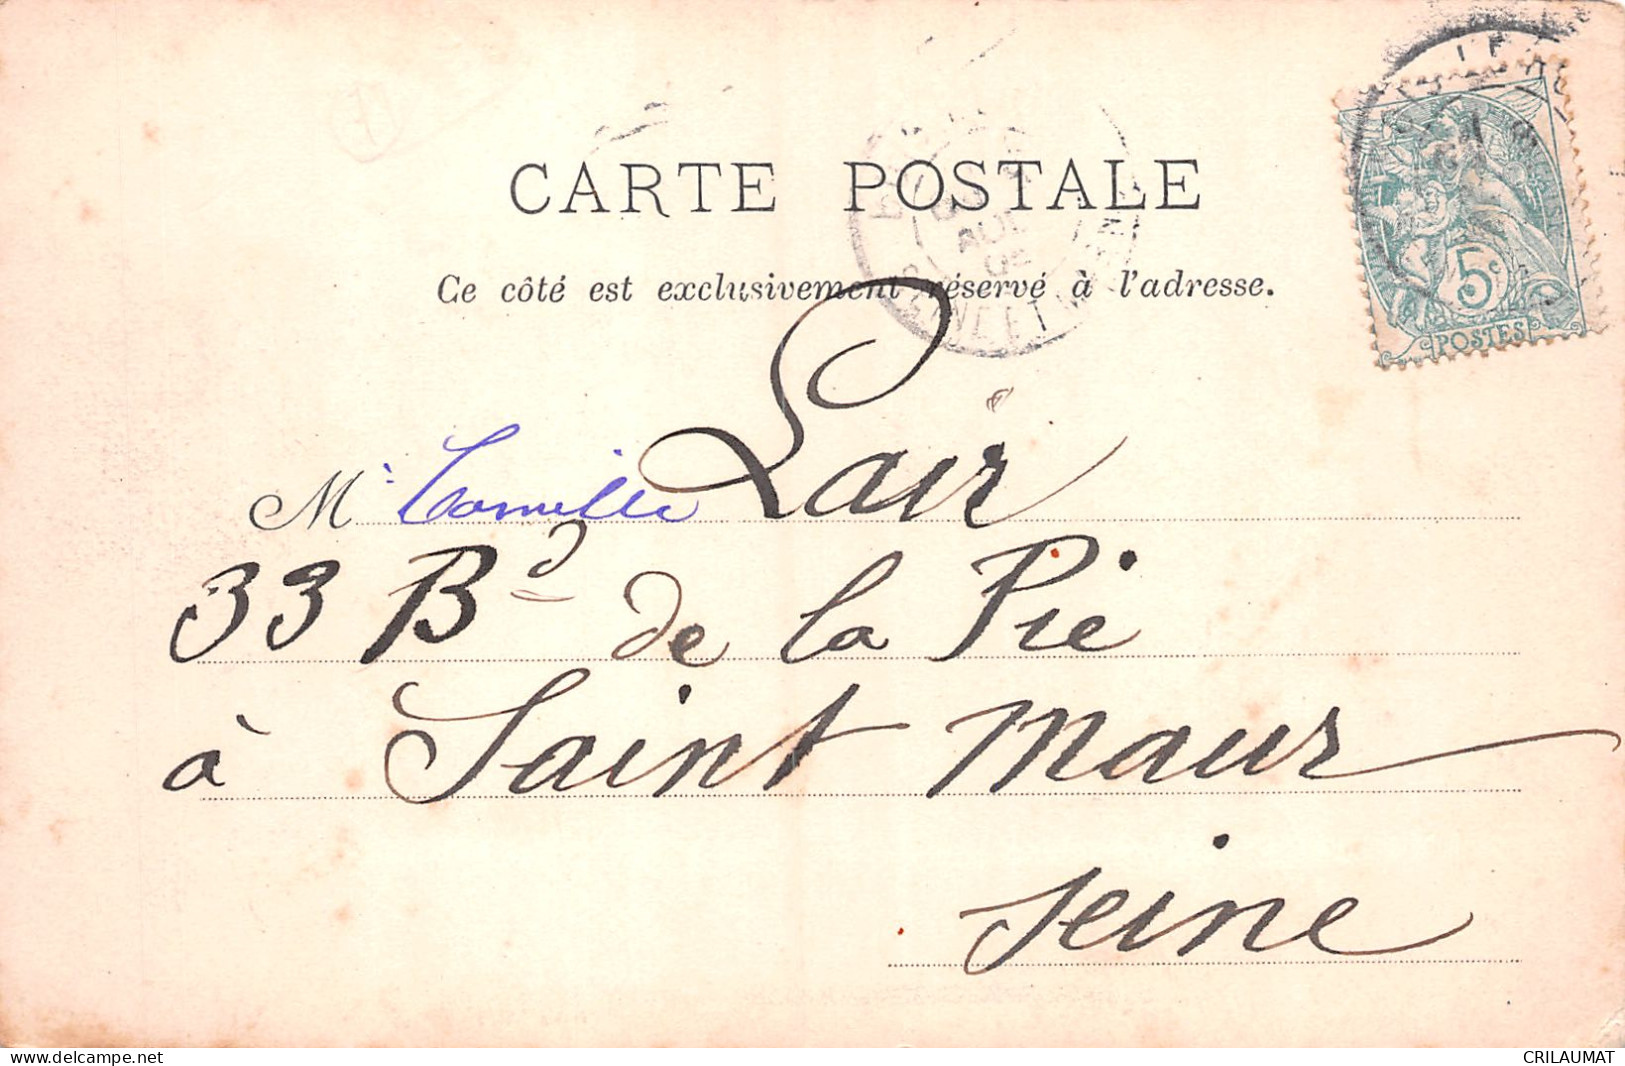 CARTE POSTALE
Ce côté est exclusivement réservé à l'adresse.
5c
POSTES
AOUT
M. Camille Lair
33 Bd de la Pie
à Saint Maur
Seine
www.delcampe.net
CRILAUMAT